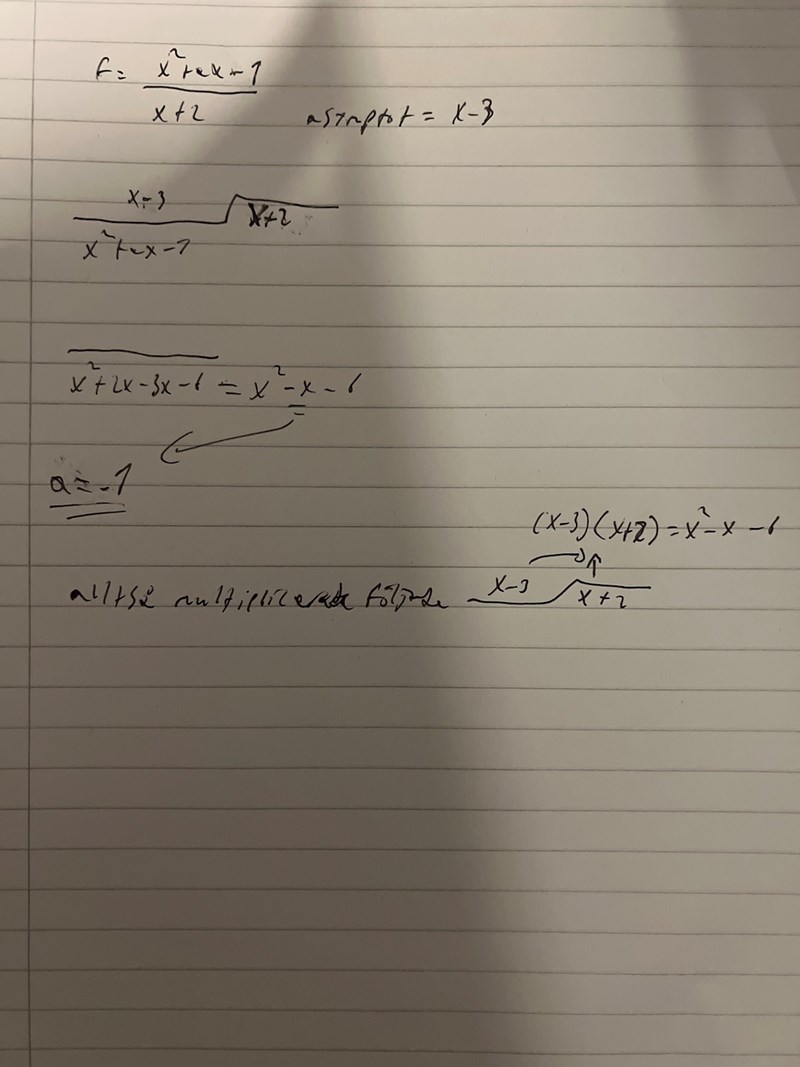 f = x²+ax-1
x+2
asymptot = x-3
x-3
x+2
x²+ax-1
x²+2x-3x-6 = x²-x-6
a=-1
(x-3)(x+2)=x²-x-6
alltså multiplicerade följande x-3 x+2